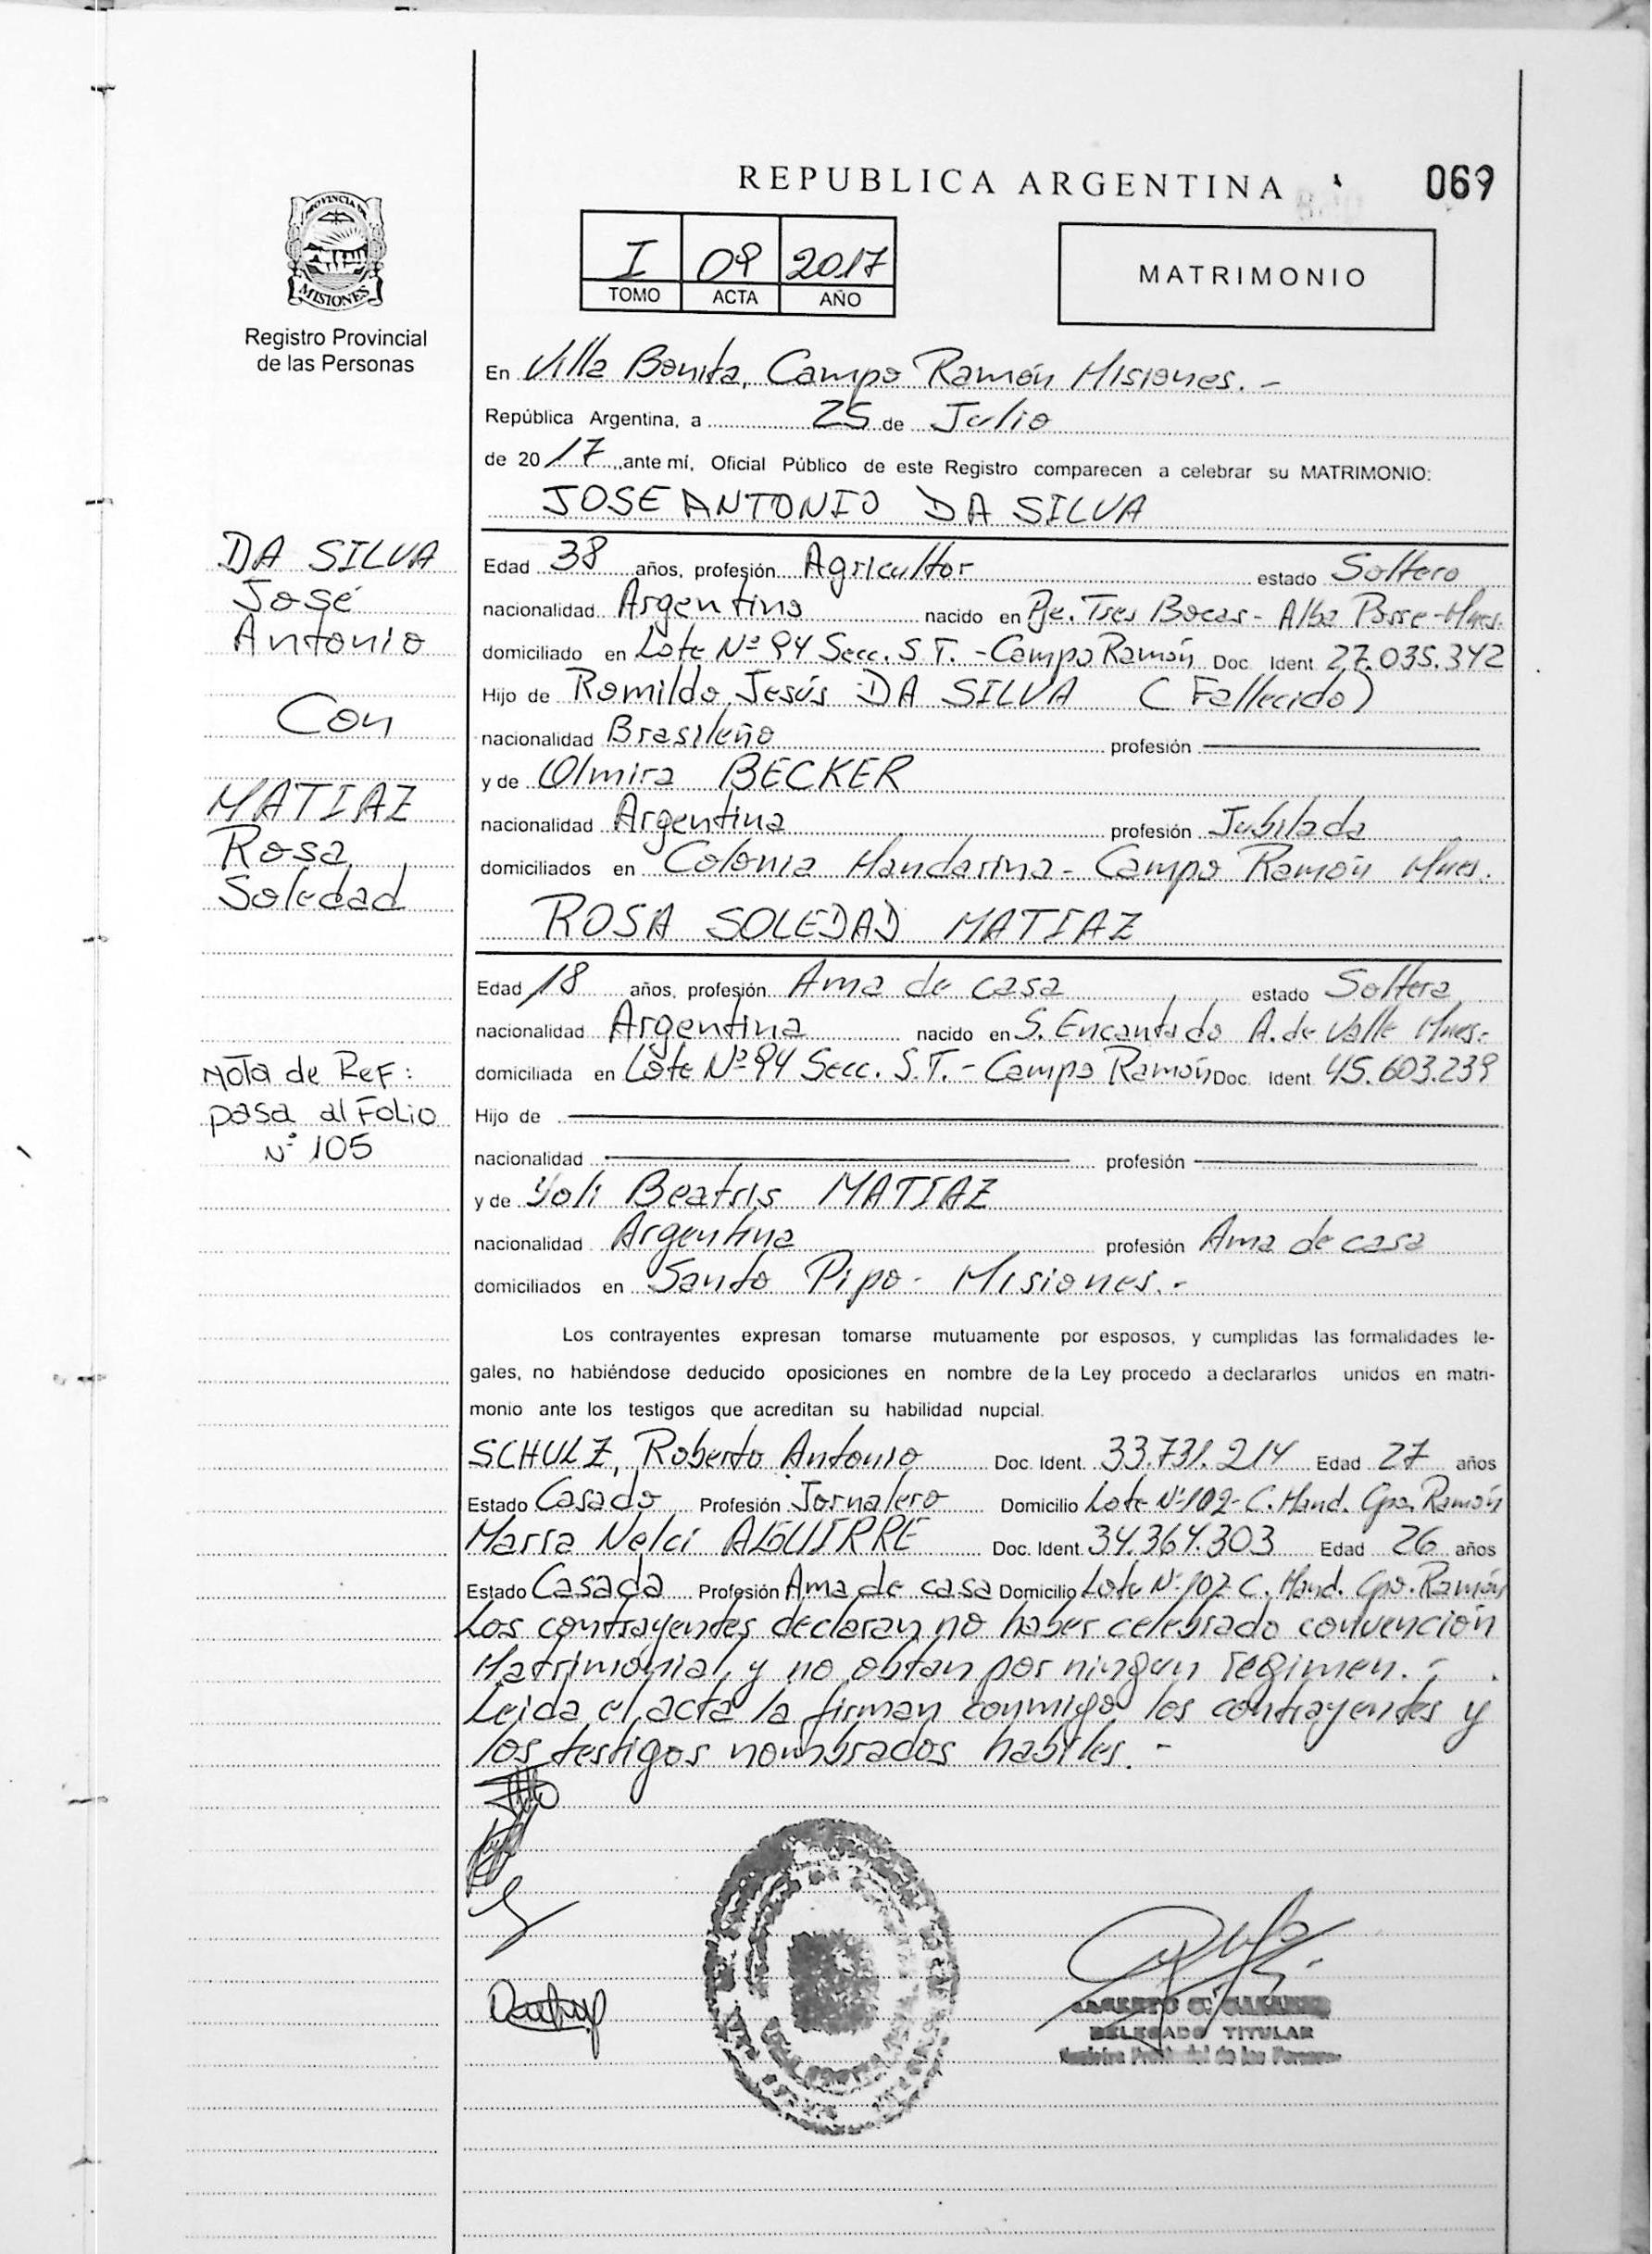 REPUBLICA ARGENTINA
069
PROVINCIA DE
MISIONES
Registro Provincial
de las Personas
I 09 2017
TOMO ACTA AÑO
MATRIMONIO
En Villa Bonita, Campo Ramón Misiones.-
República Argentina, a 25 de Julio
de 2017 ante mí, Oficial Público de este Registro comparecen a celebrar su MATRIMONIO:
JOSE ANTONIO DA SILVA
DA SILVA
José
Antonio
Con
MATIAZ
Rosa
Soledad
Nota de Ref:
pasa al Folio
N° 105
Edad 38 años, profesión Agricultor estado Soltero
nacionalidad Argentino nacido en Pje. Tres Bocas - Alba Posse - Mnes.
domiciliado en Lote Nº 94 Secc. S.T. - Campo Ramón Doc. Ident. 27.035.342
Hijo de Romildo Jesús DA SILVA (Fallecido)
nacionalidad Brasileño profesión
y de Olmira BECKER
nacionalidad Argentina profesión Jubilada
domiciliados en Colonia Mandarina - Campo Ramón Mnes.
ROSA SOLEDAD MATIAZ
Edad 18 años, profesión Ama de casa estado Soltera
nacionalidad Argentina nacido en S. Encantado A. de Valle Mnes.-
domiciliada en Lote Nº 94 Secc. S.T. - Campo Ramón Doc. Ident. 45.603.239
Hijo de
nacionalidad profesión
y de Yoli Beatris MATIAZ
nacionalidad Argentina profesión Ama de casa
domiciliados en Santo Pipo - Misiones.-
Los contrayentes expresan tomarse mutuamente por esposos, y cumplidas las formalidades le-
gales, no habiéndose deducido oposiciones en nombre de la Ley procedo a declararlos unidos en matri-
monio ante los testigos que acreditan su habilidad nupcial.
SCHULZ, Roberto Antonio Doc. Ident. 33.731.214 Edad 27 años
Estado Casado Profesión Jornalero Domicilio Lote Nº 102 - C. Mand. Cpo. Ramón
Maria Nelci AGUIRRE Doc. Ident. 34.364.303 Edad 26 años
Estado Casada Profesión Ama de casa Domicilio Lote Nº 102 C. Mand. Cpo. Ramón
Los contrayentes declaran no haber celebrado convención
Matrimonial, y no obtan por ningun regimen.-
Leida el acta la firman conmigo los contrayentes y
los testigos nombrados habiles.-
DELEGADO TITULAR
Registro Provincial de las Personas